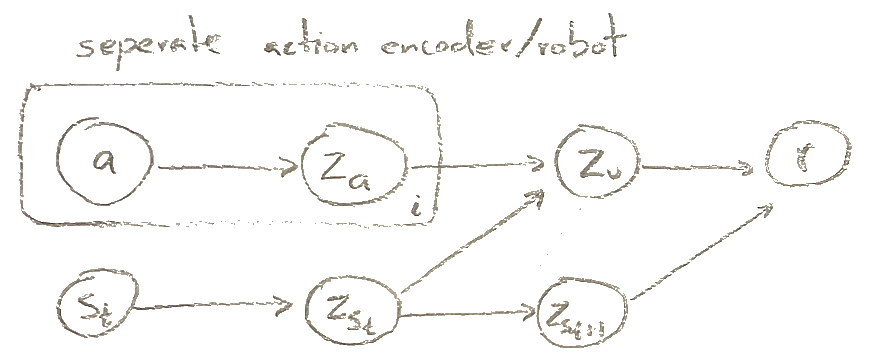 seperate action encoder/robot
a Z_a Z_v r
i
S_t Z_{S_t} Z_{S_{t+1}}